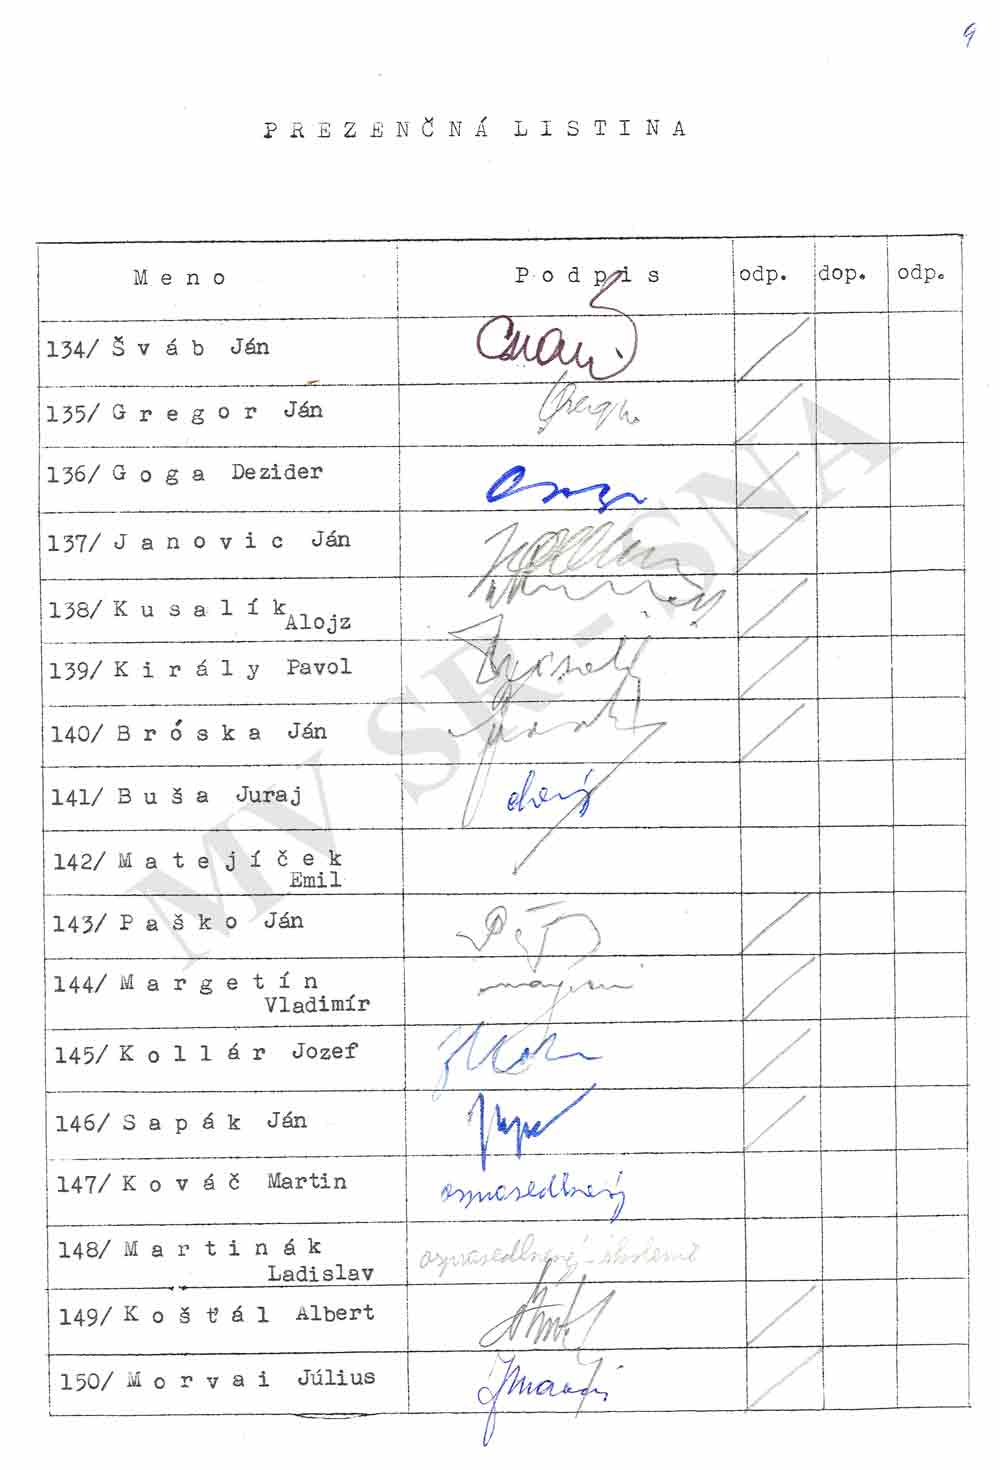 9
PREZENČNÁ LISTINA
Meno Podpis odp. dop. odp.
134/ Šváb Ján
135/ Gregor Ján
136/ Goga Dezider
137/ Janovic Ján
138/ Kusalík
Alojz
139/ Király Pavol
140/ Bróska Ján
141/ Buša Juraj chorý
142/ Matejíček
Emil
143/ Paško Ján
144/ Margetín
Vladimír
145/ Kollár Jozef
146/ Sapák Ján
147/ Kováč Martin ospravedlnený
148/ Martinák ospravedlnený - školenie
Ladislav
149/ Košťál Albert
150/ Morvai Július
MV SR - SNA